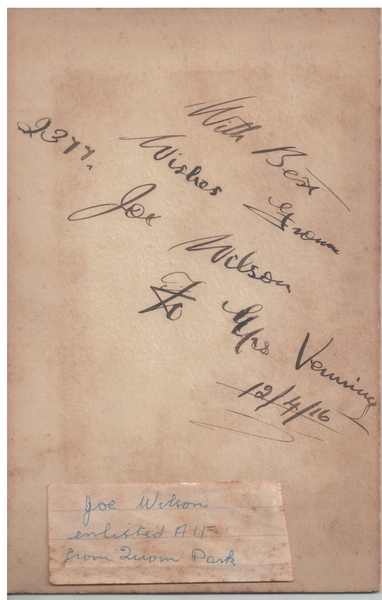 2377.
With Best
Wishes From
Joe Wilson
To Mrs Venning
12/4/16
Joe Wilson
enlisted AIF
from Quorn Park